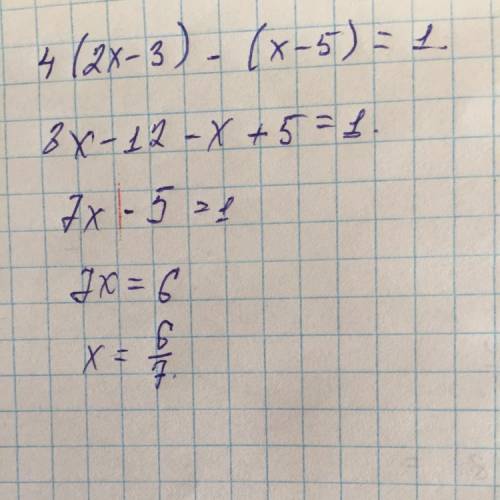 4(2x-3) - (x-5) = 1.
8x-12-x+5=1.
7x-5=1
7x=6
x=6/7.